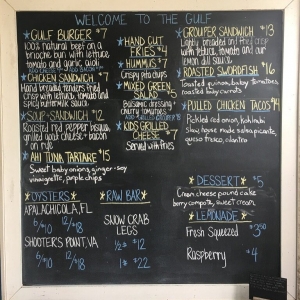 WELCOME TO THE GULF
GULF BURGER $7
100% natural beef on a
brioche bun with lettuce
tomato and garlic aioli
CHICKEN SANDWICH $7
Hand breaded tenders fried
crisp with lettuce, tomato and
spicy buttermilk sauce
SOUP + SANDWICH $12
Roasted red pepper bisque
grilled goat cheese + bacon
on rye
AHI TUNA TARTARE $15
Sweet baby onions, ginger-soy
vinaigrette, purple chips
HAND CUT
FRIES $4
HUMMUS $7
Crispy pita chips
MIXED GREEN
SALAD $5
Balsamic dressing
crudité tomatoes
KIDS GRILLED
CHEESE $7
Served with fries
GROUPER SANDWICH $13
Lightly breaded and fried crisp
with lettuce, tomato and our
lemon dill sauce
ROASTED SWORDFISH $16
Toasted quinoa, baby tomatoes,
roasted baby carrots
PULLED CHICKEN TACOS $14
Pickled red onion, kohlrabi
Slaw, house made salsa, picante,
queso fresco, cilantro
OYSTERS
APALACHICOLA, FL
6/$10 12/$18
SHOOTERS POINT, VA
6/$10 12/$18
RAW BAR
SNOW CRAB
LEGS
1/2# $12
1# $22
DESSERT $5
Cream cheese pound cake
berry compote, sweet cream
LEMONADE
Fresh Squeezed $3.50
Raspberry $4